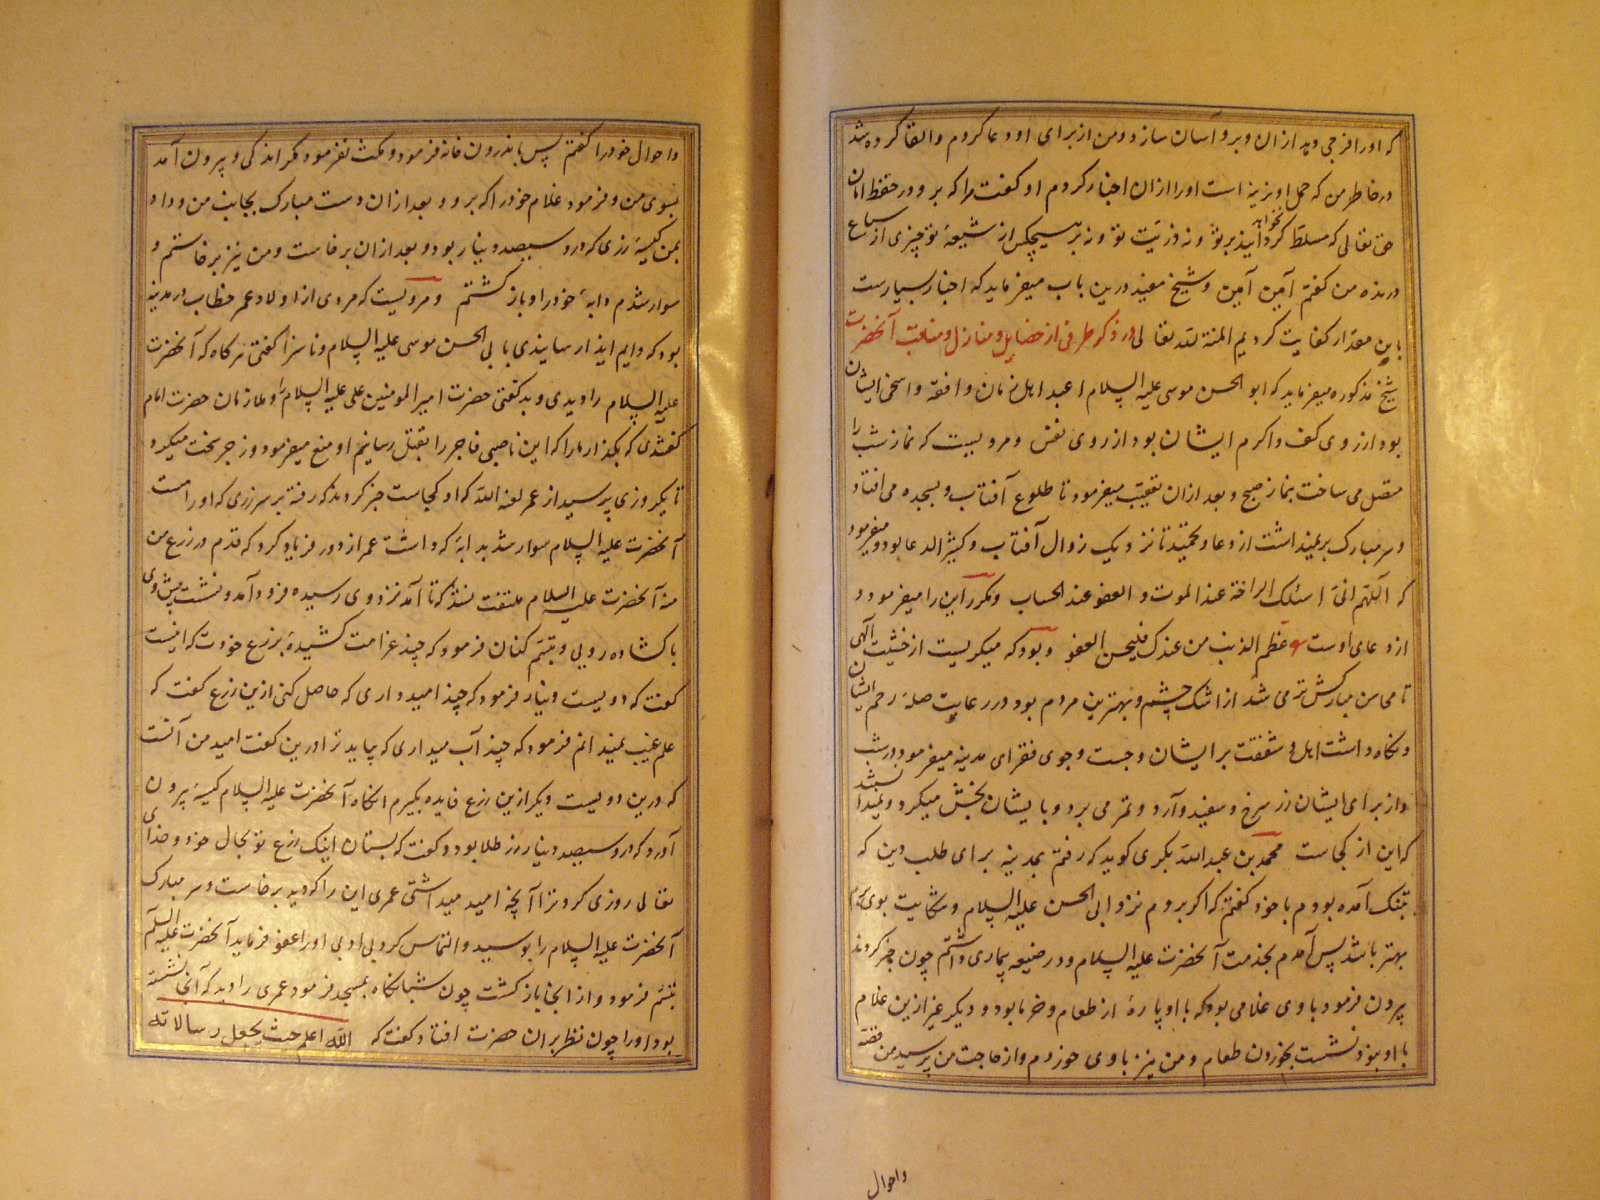 که او را فرجی دهد ازان و برو آسان سازد و من از برای او دعا کردم و القا کرده شد
در خاطر من که حمل او نرینه است او را ازان اخبار کردم او گفت مرا که برو در حفظ و امان
حق تعالی که مسلط نخواهد گردانید بر تو و نه ذریت تو و نه بر هیچکس از شیعهٔ تو چیزی از سباع
درنده من گفتم آمین آمین و شیخ مفید درین باب میفرماید که اخبار بسیارست
باین مقدار کفایت کردیم المنة لله تعالی در ذکر طرفی از فضایل و منازل و مناقب آنحضرت
شیخ مذکوره میفرماید که ابو الحسن موسی علیه السلام اعبد اهل زمان و افقه و اسخی ایشان
بود از روی کف و اکرم ایشان بود از روی نفس و مرویست که نماز شب را
متصل می ساخت بنماز صبح و بعد ازان تعقیب میفرمود تا طلوع آفتاب و بسجده می افتاد
و سر مبارک بر نمیداشت از دعا و تحمید تا نزدیک زوال آفتاب و کثیر الدعا بود و میفرمود
که اللهم انی اسئلک الراحة عند الموت و العفو عند الحساب و مکرر این را میفرمود و
از دعای اوست عظم الذنب من عندک فلیحسن العفو و بود که میگریست از خشیت الهی
تا محاسن مبارکش تر می شد از اشک چشم و بهترین مردم بود در رعایت صلهٔ رحم ایشان
و نگاه داشت اهل و شفقت بر ایشان و جست و جوی فقرای مدینه میفرمود در شب
و از برای ایشان زر سرخ و سفید و آرد و تمر می برد و بایشان بخش میکرد و نمیدانستند
که این از کجاست محمد بن عبد الله بکری گوید که رفتم بمدینه برای طلب دین که
بتنگ آمده بودم با خود گفتم که اگر بروم نزد ابی الحسن علیه السلام و شکایت بوی برم
بهتر باشد پس آمدم بخدمت آنحضرت علیه السلام و در ضیعه چون خبر کردند
بیرون فرمود با وی غلامی بود که با او پارهٔ از طعام و خرما بود و دیگر غیر ازین غلام
با او نبود نشست بخوردن طعام و من نیز با وی خوردم و از حاجت من پرسید من قصه
و احوال
و احوال خود را گفتم پس باندرون خانه فرمود و مکث نفرمود مگر اندکی و بیرون آمد
بسوی من و فرمود غلام خود را که برو و بعد ازان دست مبارک بجانب من و داد
بمن کیسهٔ زری که درو سیصد دینار بود و بعد ازان برخاست و من نیز برخاستم و
سوار شدم دابهٔ خود را و باز گشتم و مرویست که مردی از اولاد عمر خطاب در مدینه
بود که دایم ایذا رسانیدی بابی الحسن موسی علیه السلام و ناسزا گفتی هر گاه که آنحضرت
علیه السلام را دیدی و بد گفتی حضرت امیر المومنین علی علیه السلام را و ملازمان حضرت امام
گفتندی که بگذار ما را که این ناصبی فاجر را بقتل رسانیم او منع میفرمود و زجر سخت میکرد
تا یکروزی پرسید از عمر لعنه الله که او کجاست خبر کردند که رفته بر سر زرعی که او راست
آنحضرت علیه السلام سوار شد بدابهٔ که داشت عمر از دور فریاد کرد که قدم در زرع من
منه آنحضرت علیه السلام ملتفت نشد که تا آمد نزد وی رسیده فرود آمد و نشست پیش وی
با گشاده رویی و تبسم کنان فرمود که چند غرامت کشیدهٔ بزرع خودت که اینست
گفت که دویست دینار فرمود که چند امید داری که حاصل کنی ازین زرع گفت که
علم غیب نمیدانم فرمود که چند آب میداری که بیاید ترا درین گفت امید من آنست
که درین دویست دیگر ازین زرع فایده بگیرم انگاه آنحضرت علیه السلام کیسهٔ بیرون
آورد که درو سیصد دینار زر طلا بود و گفت که بستان اینک زرع تو بحال خود و خدای
تعالی روزی کرد ترا آنچه امید میداشتی عمری این را که دید برخاست و سر مبارک
آنحضرت علیه السلام را بوسید و التماس کرد بی ادبی او را عفو فرماید آنحضرت علیه السلام
تبسم فرمود و از انجا باز گشت چون شبانگاه بمسجد فرمود عمری را دید که آنجا نشسته
بود او را چون نظر بران حضرت افتاد گفت که الله اعلم حیث یجعل رسالاته